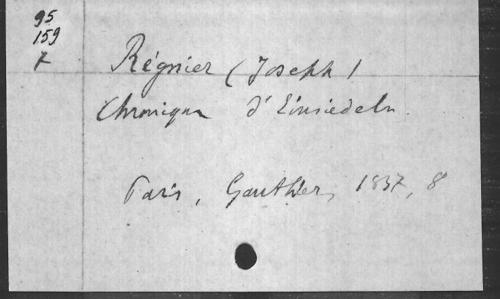 95
159
7
Régnier (Joseph)
Chronique d'Einsiedeln.
Paris, Gauthier, 1837, 8